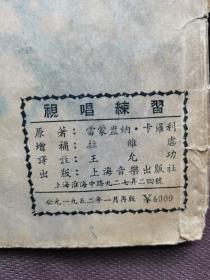 視唱練習
原著：雷蒙盎納·卡羅利
增補：拉維慮
譯註：王允功
出版：上海音樂出版社
上海淮海中路九二七弄二四號
公元一九五二年一月再版 ¥6000